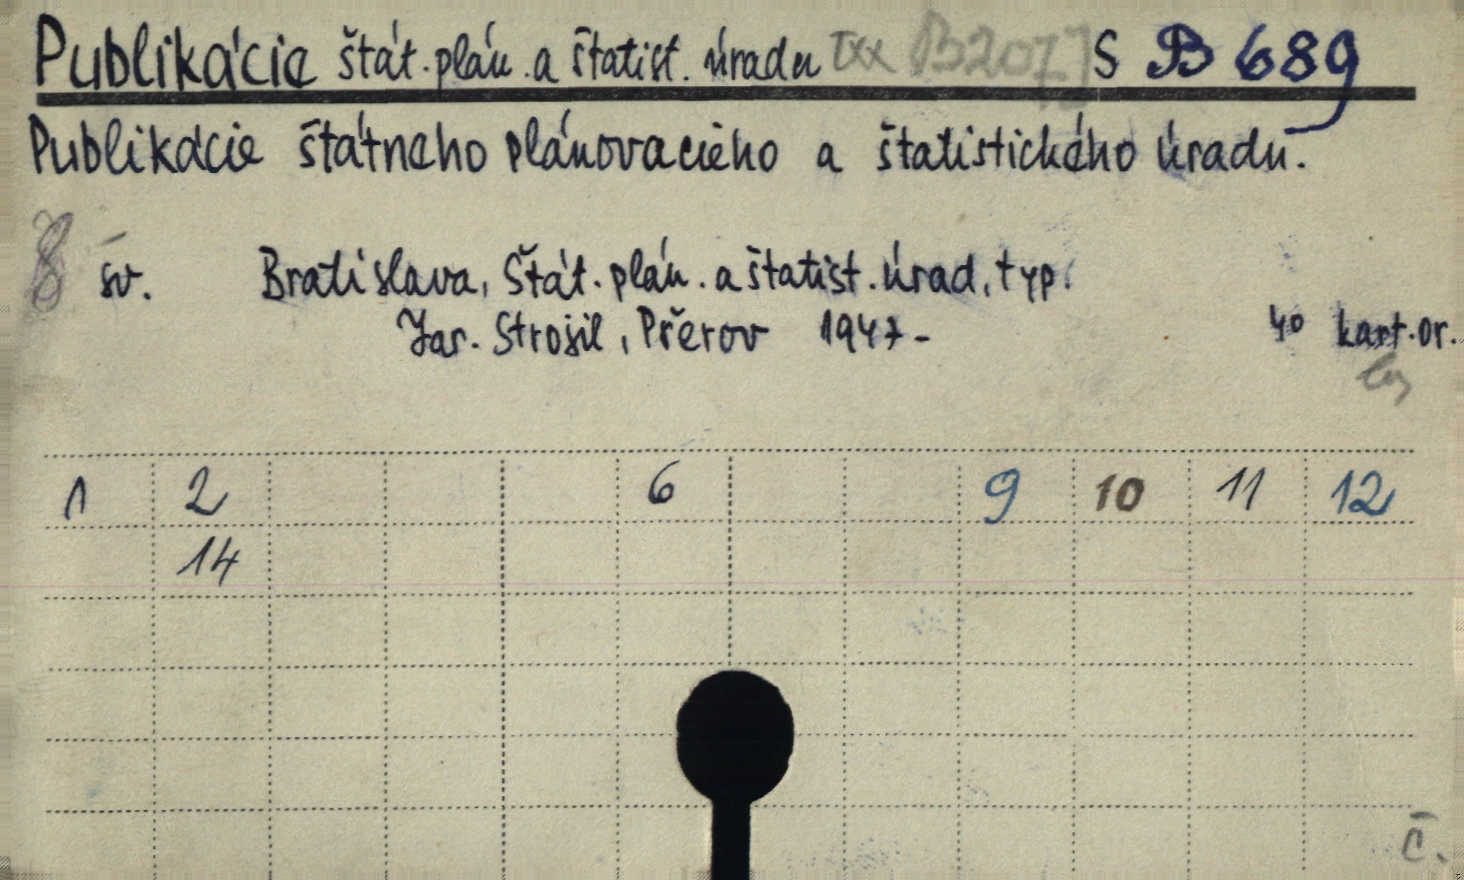 Publikácie štát. plán. a štatist. úradu S B 689
Publikácie štátneho plánovacieho a štatistického úradu.
8 sv. Bratislava, Štát. plán. a štatist. úrad, typ.
Jar. Strojil, Přerov 1947- 4° kart. or.
1 2 6 9 10 11 12
14
č.